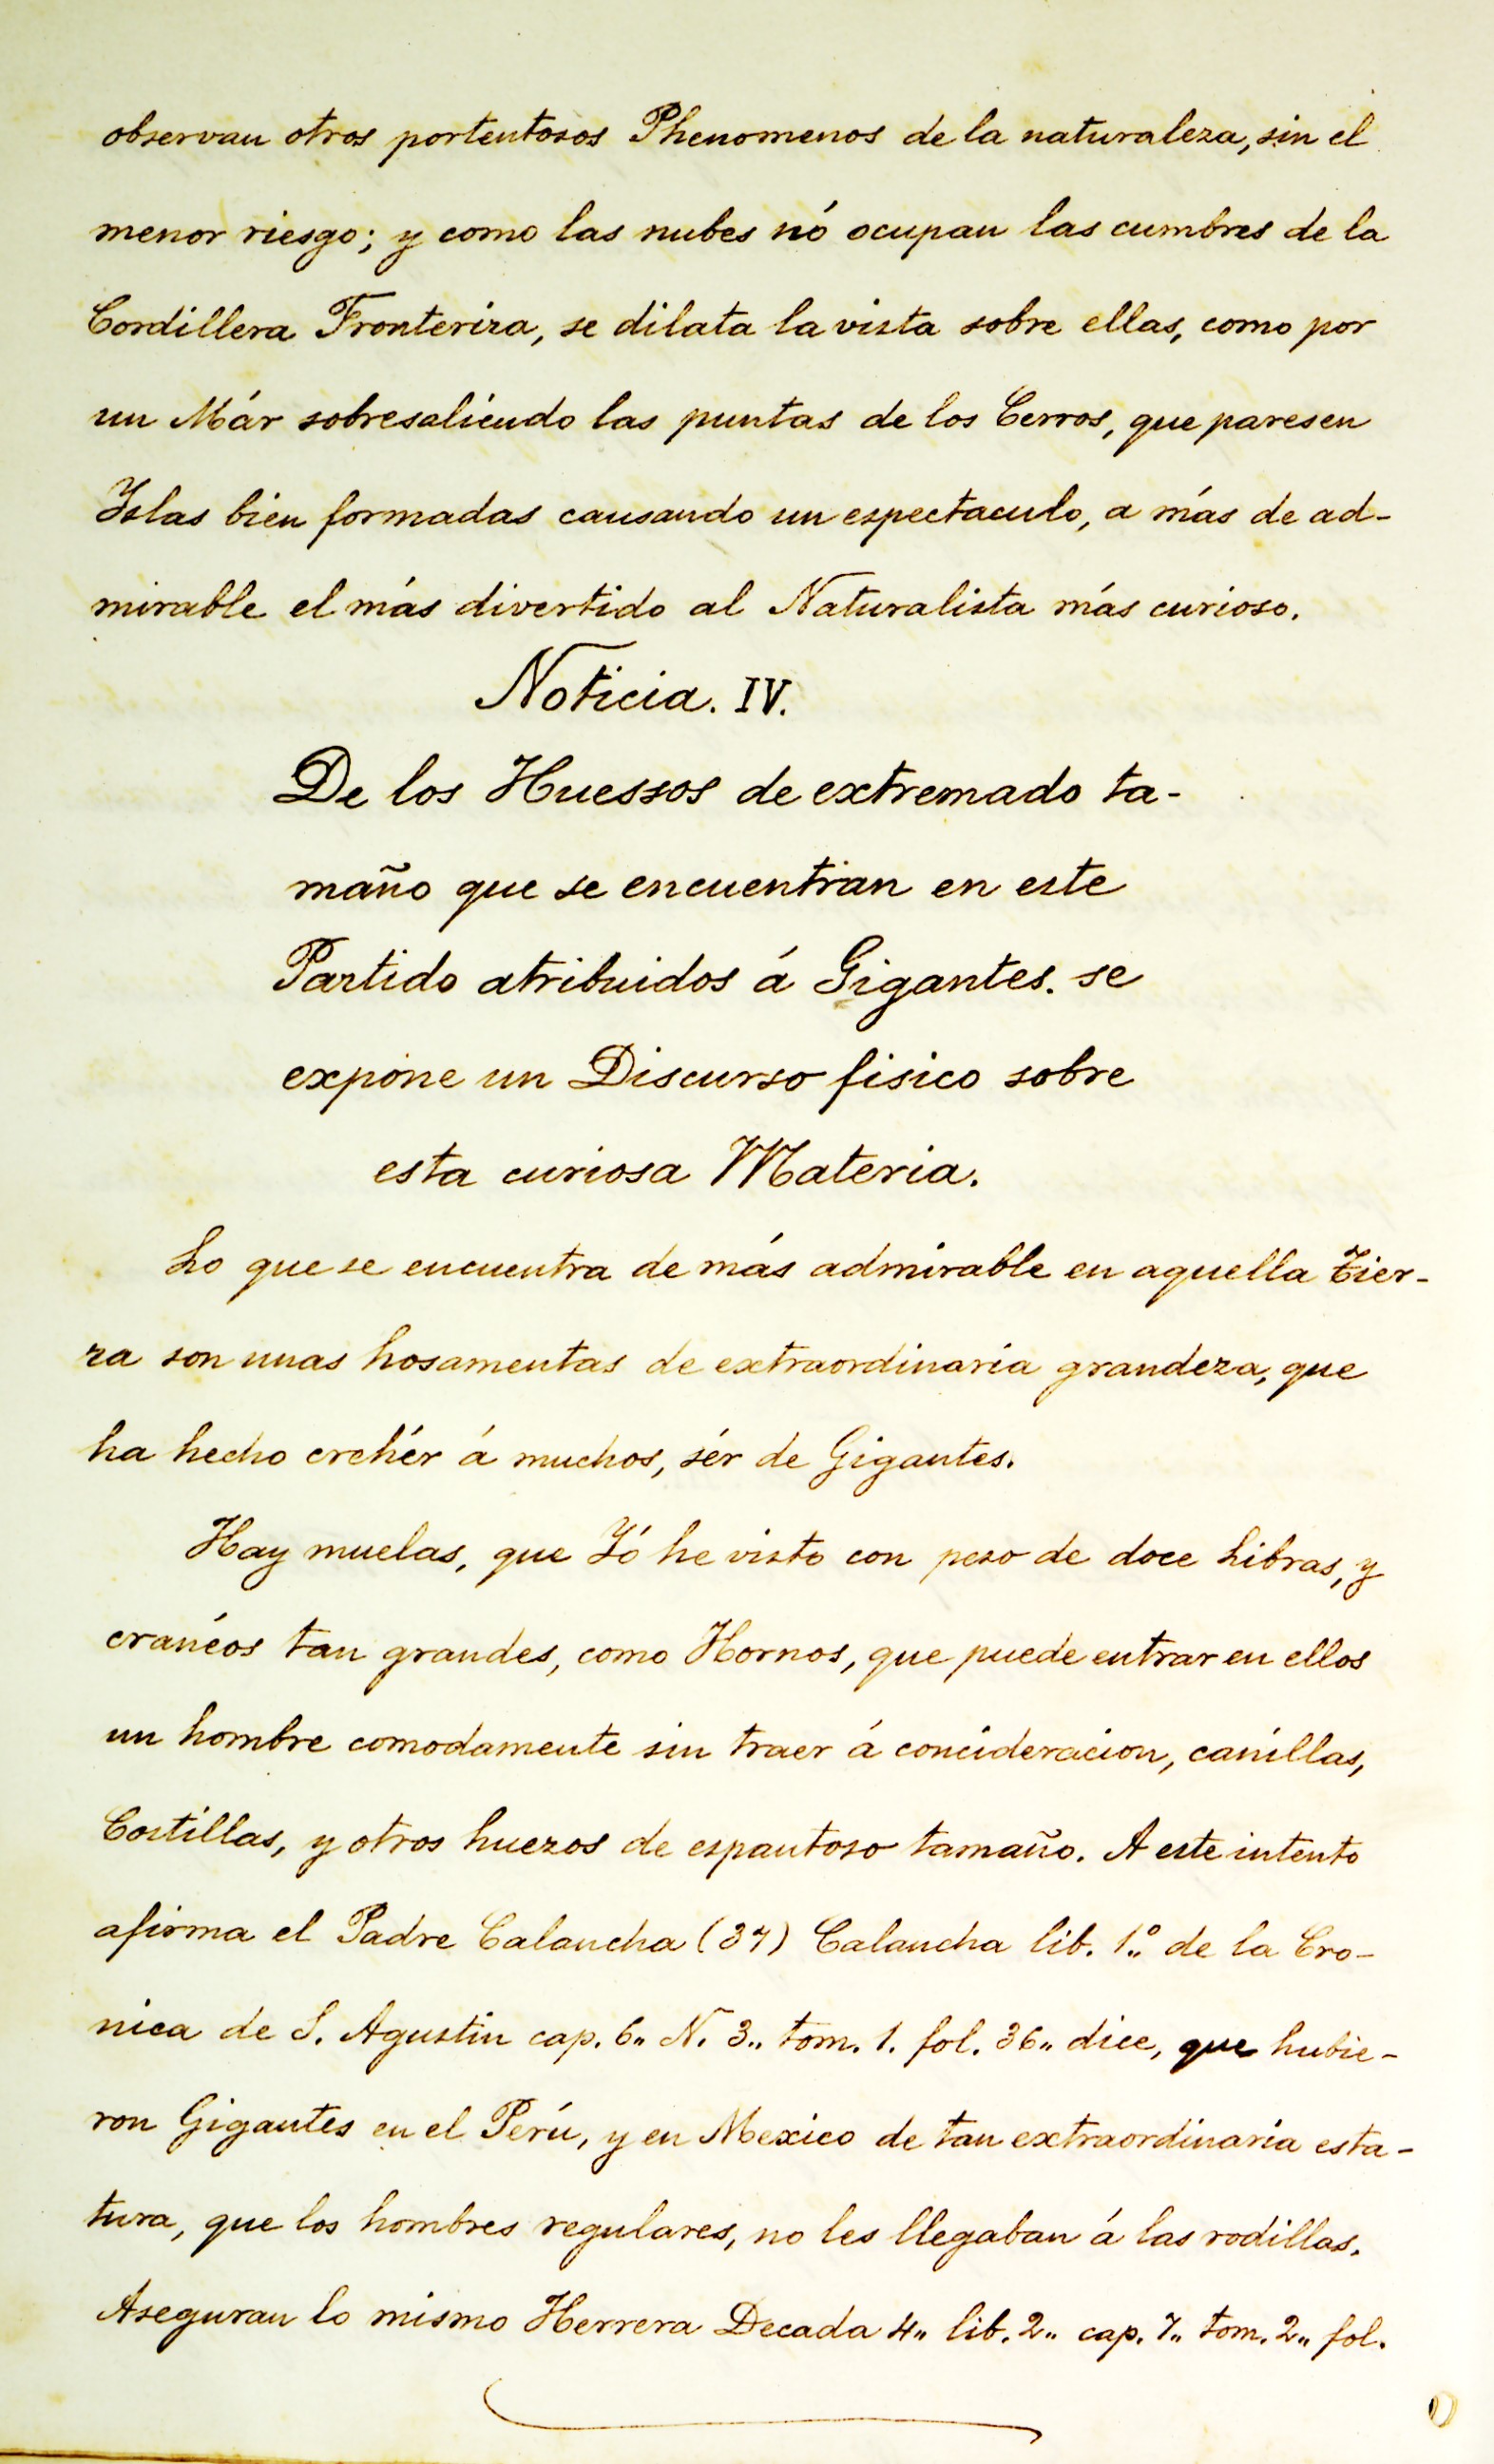 observan otros portentosos Phenomenos de la naturaleza, sin el
menor riesgo; y como las nubes nó ocupan las cumbres de la
Cordillera Fronteriza, se dilata la vista sobre ellas, como por
un Már sobresaliendo las puntas de los Cerros, que paresen
Yslas bien formadas causando un espectaculo, a más de ad-
mirable el más divertido al Naturalista más curioso.
Noticia. IV.
De los Huessos de extremado ta-
maño que se encuentran en este
Partido atribuidos á Gigantes. se
expone un Discurso fisico sobre
esta curiosa Materia.
Lo que se encuentra de más admirable en aquella tier-
ra son unas hosamentas de extraordinaria grandeza, que
ha hecho crehér á muchos, sér de Gigantes.
Hay muelas, que Yó he visto con peso de doce Libras, y
cranéos tan grandes, como Hornos, que puede entrar en ellos
un hombre comodamente sin traer á concideracion, canillas,
Costillas, y otros huezos de espantoso tamaño. A este intento
afirma el Padre Calancha (37) Calancha lib. 1.º de la Cro-
nica de S. Agustin cap. 6„ N. 3„ tom. 1. fol. 36„ dice, que hubie-
ron Gigantes en el Perú, y en Mexico de tan extraordinaria esta-
tura, que los hombres regulares, no les llegaban á las rodillas.
Aseguran lo mismo Herrera Decada 4„ lib. 2„ cap. 7„ tom. 2„ fol.